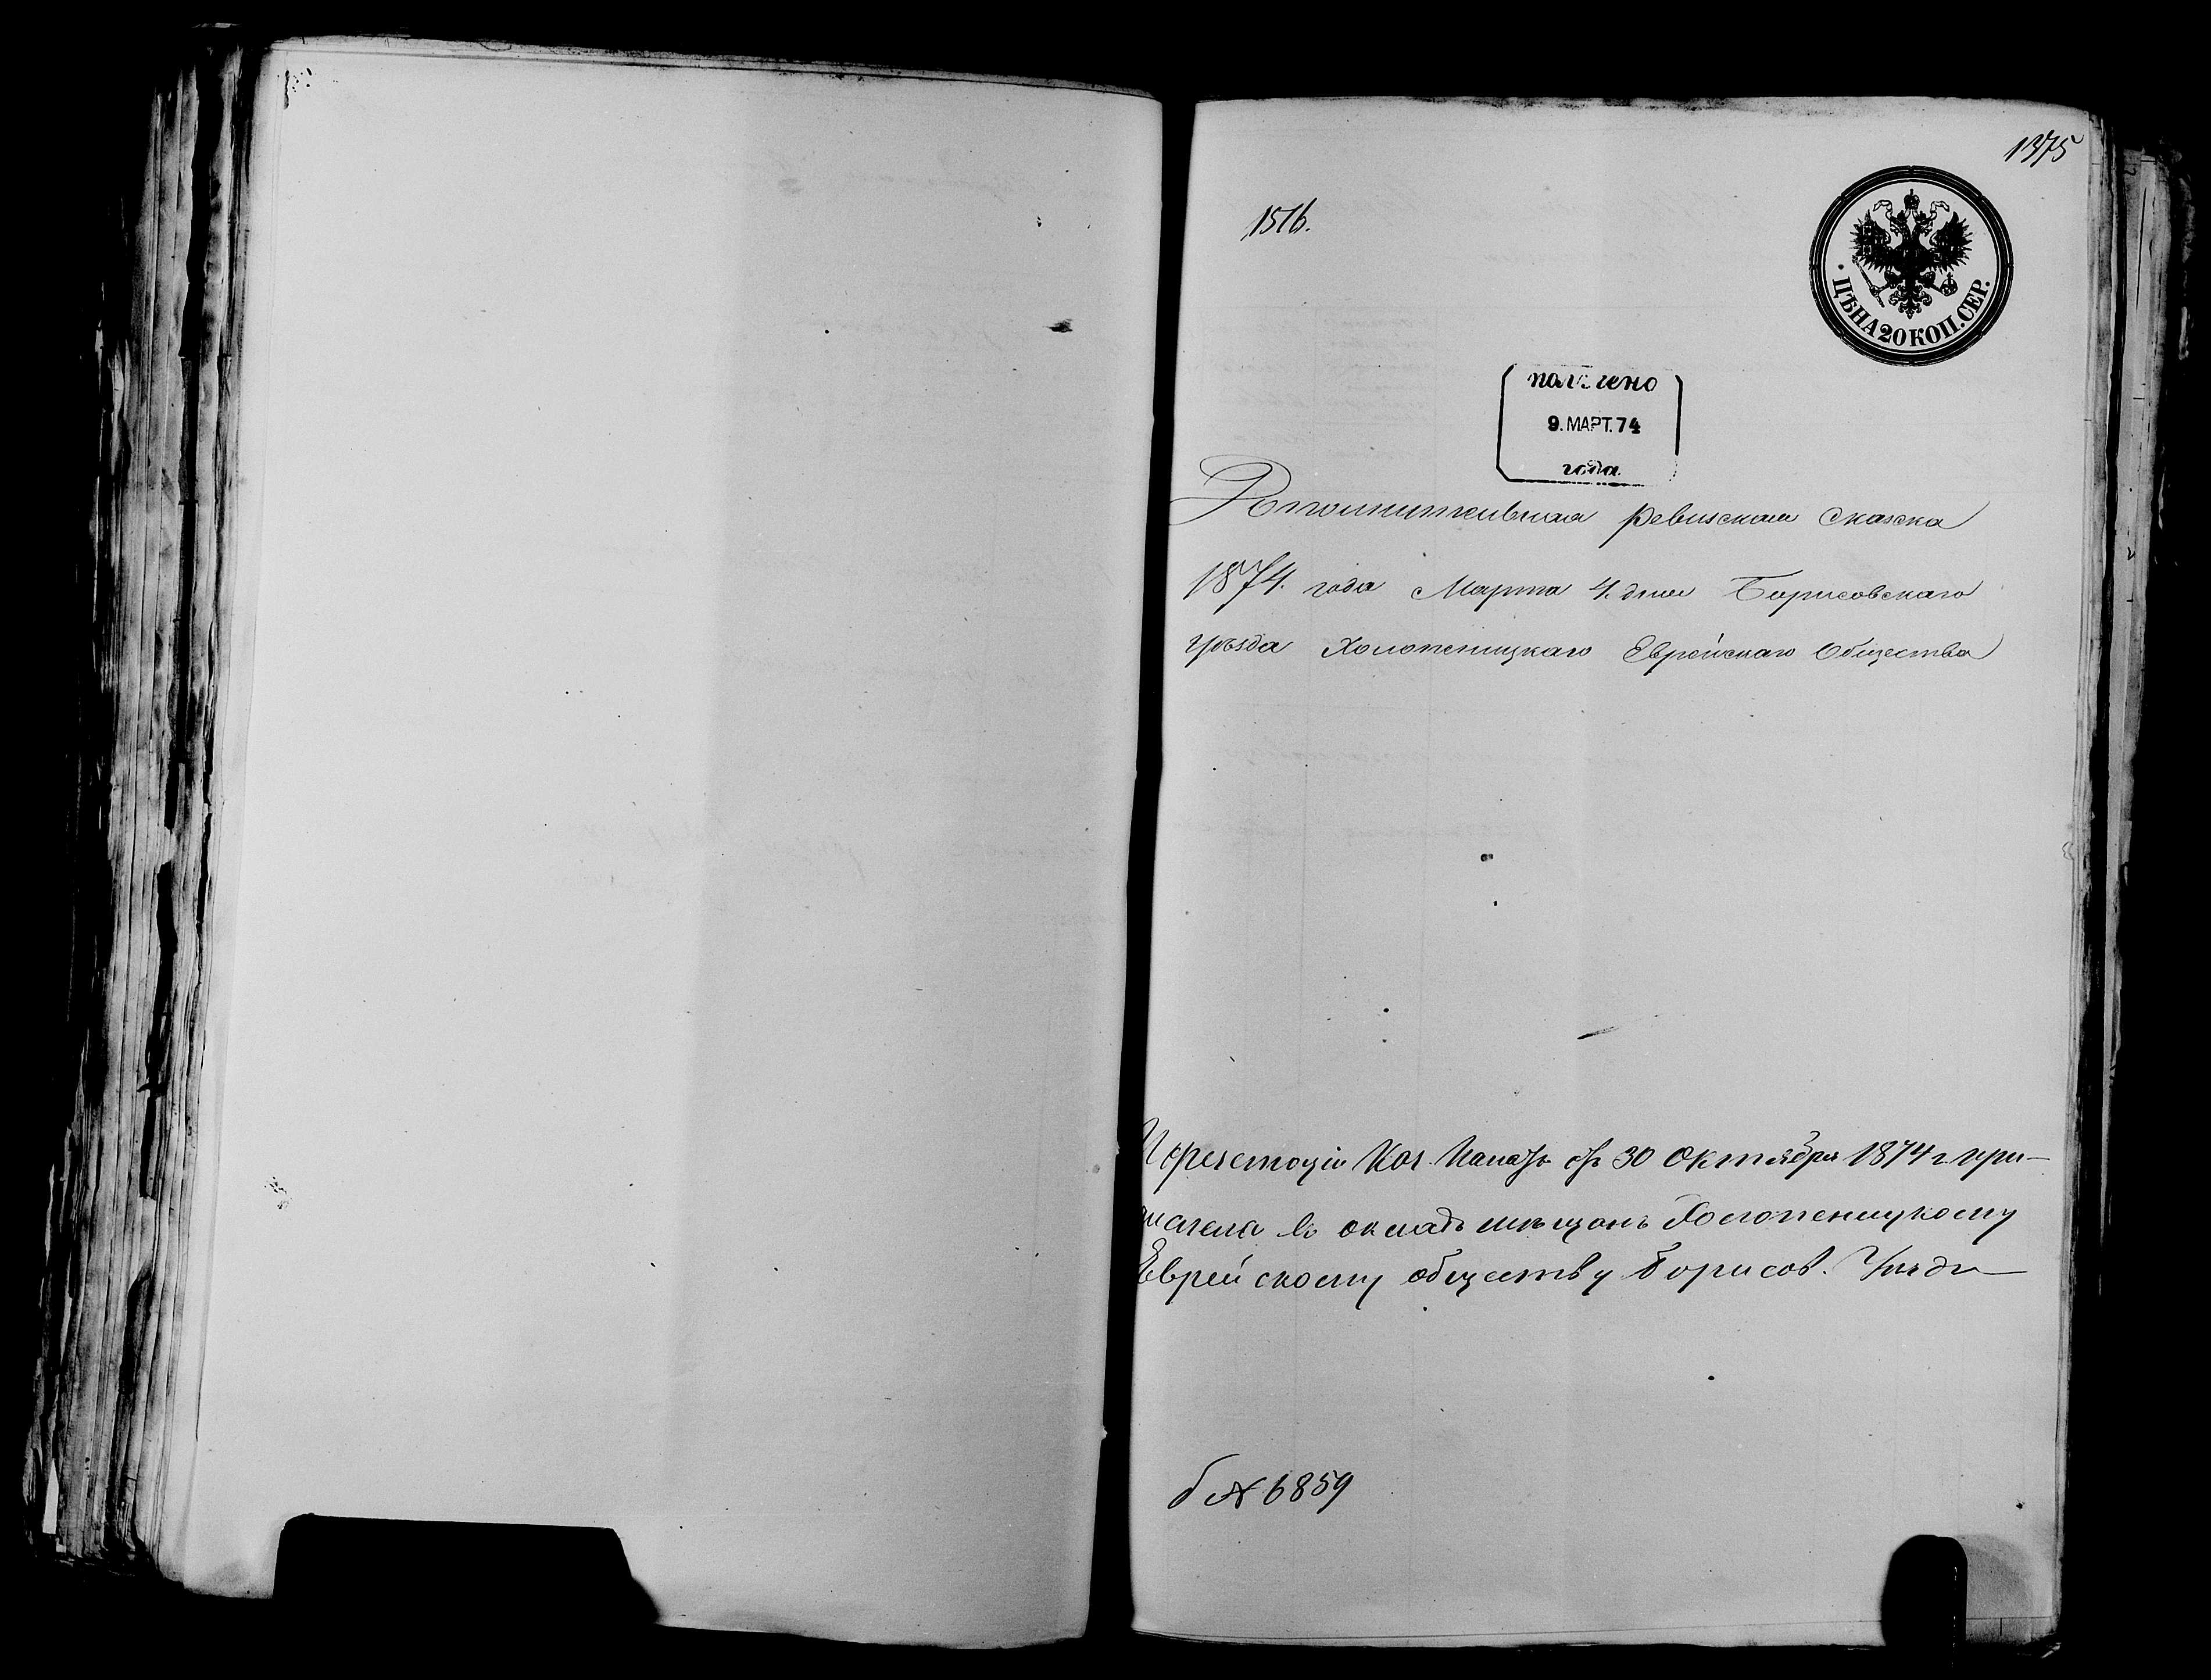 1375
1516.
ЦѢНА 20 КОП. СЕР.
получено
9. МАРТ. 74
года
Дополнительная ревизская сказка
1874. года Марта 4. дня Борисовскаго
уѣзда Холопеницкаго Еврейскаго Общества
Каз. Палаты отъ 30 Октября 1874 г. при-
числена въ окладъ мѣщанъ Холопеницкому
Еврейскому обществу Борисов. Уѣзда
№ 6859